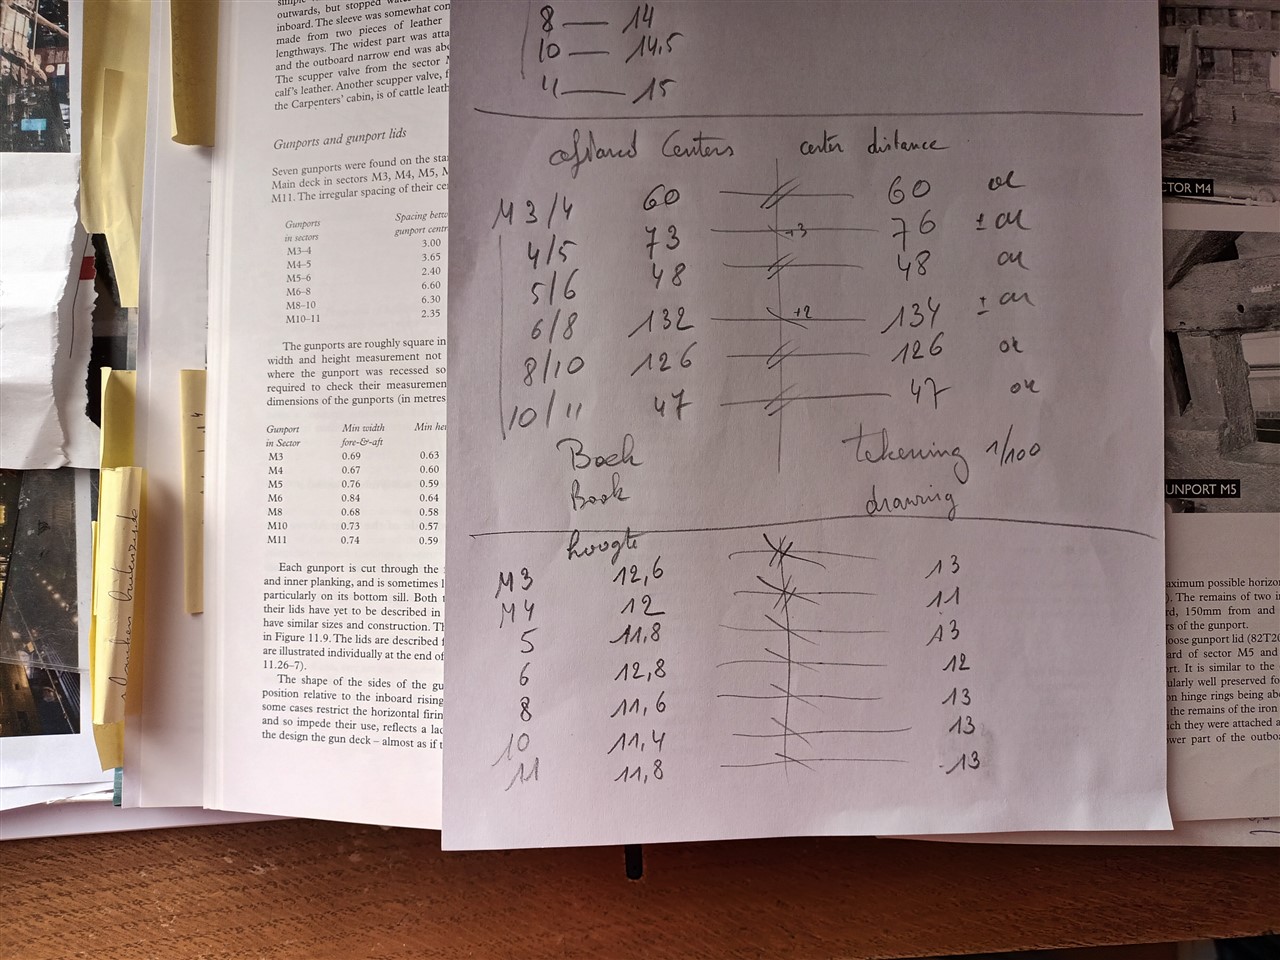 outwards, but stopped
inboard. The sleeve was somewhat
made from two pieces of leather
lengthways. The widest part was
and the outboard narrow end was
The scupper valve from the sector
calf's leather. Another scupper valve,
the Carpenters' cabin, is of cattle
Gunports and gunport lids
Seven gunports were found on the
Main deck in sectors M3, M4, M5,
M11. The irregular spacing of their
Gunports Spacing
in sectors gunport
M3–4 3.00
M4–5 3.65
M5–6 2.40
M6–8 6.60
M8–10 6.30
M10–11 2.35
The gunports are roughly square in
width and height measurement not
where the gunport was recessed so
required to check their
dimensions of the gunports (in metres
Gunport Min width Min
in Sector fore-&-aft
M3 0.69 0.63
M4 0.67 0.60
M5 0.76 0.59
M6 0.84 0.64
M8 0.68 0.58
M10 0.73 0.57
M11 0.74 0.59
Each gunport is cut through the
and inner planking, and is sometimes
particularly on its bottom sill. Both
their lids have yet to be described in
have similar sizes and construction.
in Figure 11.9. The lids are described
are illustrated individually at the end of
11.26–7).
The shape of the sides of the
position relative to the inboard rising
some cases restrict the horizontal
and so impede their use, reflects a
the design the gun deck – almost as if
8 — 14
10 — 14,5
11 — 15
Centers center distance
M 3/4 60 60 ok
4/5 73 +3 76 ± ok
5/6 48 48 ok
6/8 132 +2 134 ± ok
8/10 126 126 ok
10/11 47 47 ok
Boek tekening 1/100
Book drawing
hoogte
M3 12,6 13
M4 12 11
5 11,8 13
6 12,8 12
8 11,6 13
10 11,4 13
11 11,8 13
CTOR M4
UNPORT M5
maximum possible
The remains of two
150mm from and
of the gunport.
gunport lid
of sector M5 and
It is similar to the
well preserved
hinge rings being
the remains of the iron
they were attached
part of the